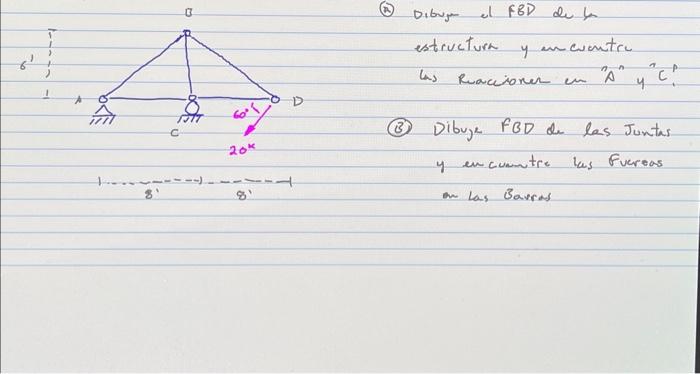 B
6'
A
C
D
60°
20ᵏ
8'
8'
(A) Dibuje el FBD de la
estructura y encuentre
las Reacciones en "A" y "C".
(B) Dibuje FBD de las Juntas
y encuentre las Fuerzas
en las Barras